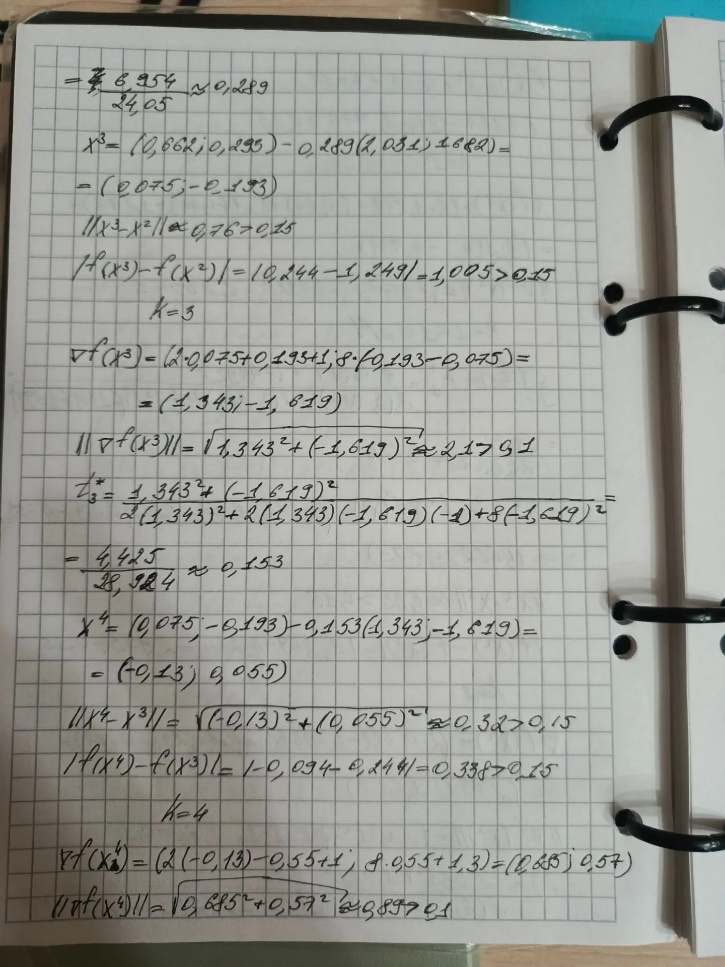 = 6,954 / 24,05 ≈ 0,289
x³ = (0,662; 0,293) - 0,289(2,031; 1682) =
= (0,075; -0,193)
||x³-x²|| ≈ 0,76 > 0,15
|f(x³) - f(x²)| = |0,244 - 1,249| = 1,005 > 0,15
K=3
∇f(x³) = (2·0,075+0,193+1; 8·(-0,193-0,075) =
= (1,343; -1,619)
||∇f(x³)|| = √1,343² + (-1,619)² ≈ 2,1 > 0,1
t₃* = 1,343² + (-1,619)² / 2(1,343)² + 2(1,343)(-1,619)(-1) + 8(-1,619)² =
= 4,425 / 28,924 ≈ 0,153
x⁴ = (0,075; -0,193) - 0,153(1,343; -1,619) =
= (-0,13; 0,055)
||x⁴-x³|| = √(-0,13)² + (0,055)² ≈ 0,32 > 0,15
|f(x⁴) - f(x³)| = |-0,094 - 0,244| = 0,338 > 0,15
K=4
∇f(x⁴) = (2(-0,13) - 0,55 + 1; 8·0,55 + 1,3) = (0,685; 0,57)
||∇f(x⁴)|| = √0,685² + 0,57² ≈ 0,89 > 0,1